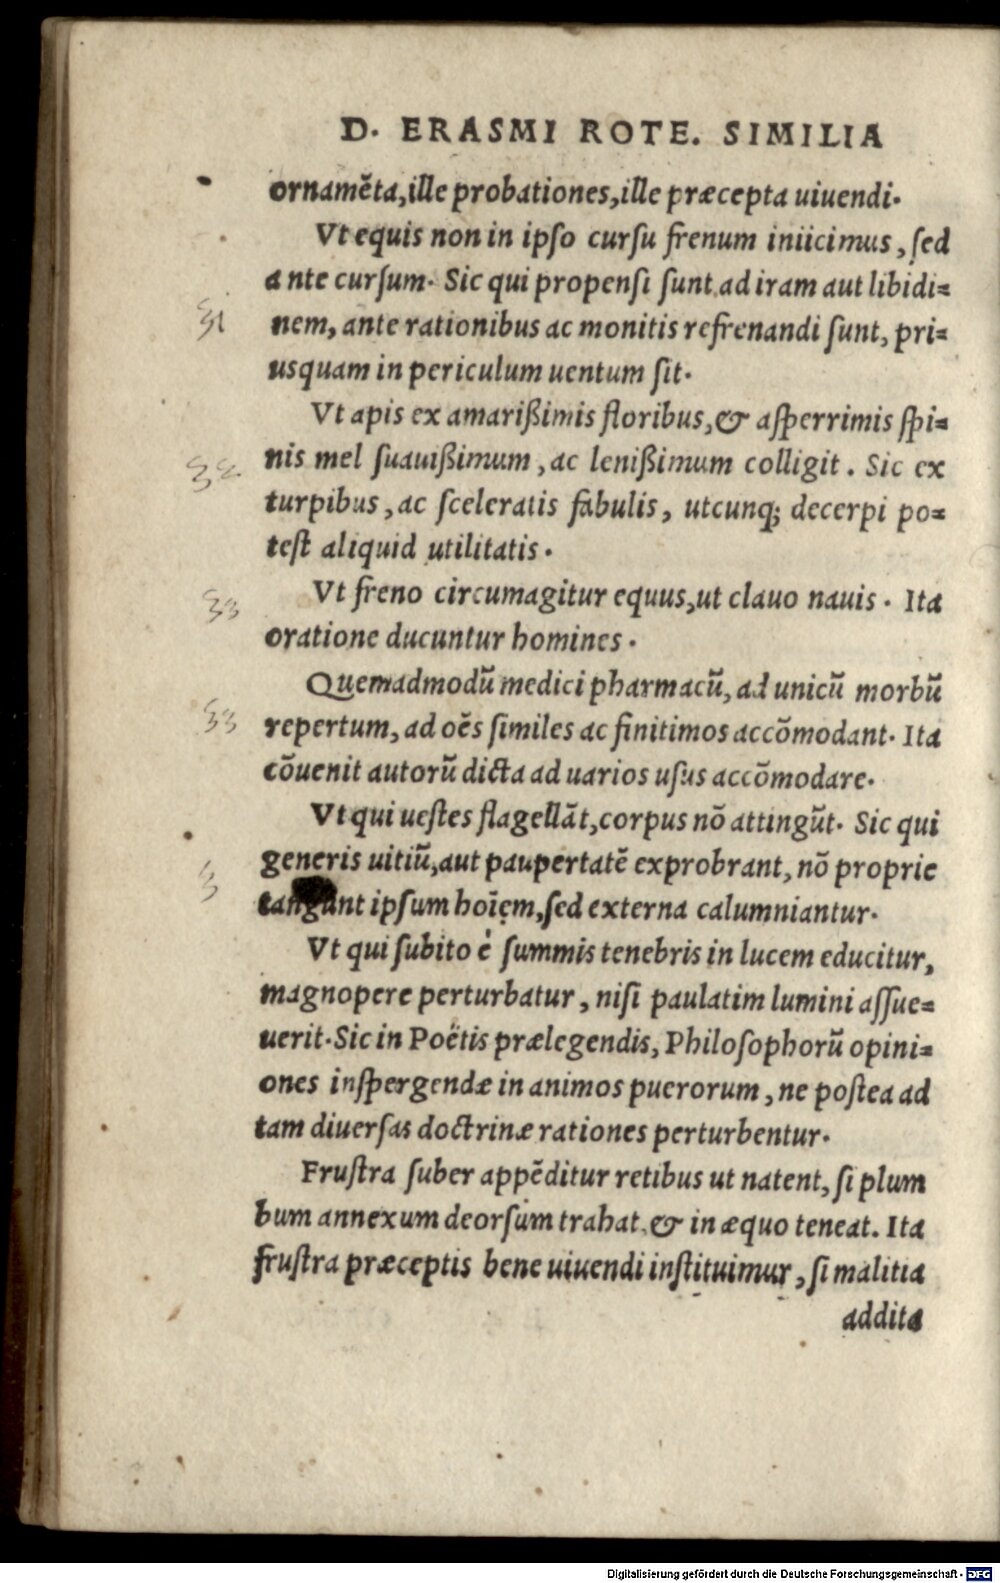 D. ERASMI ROTE. SIMILIA
ornamēta, ille probationes, ille præcepta uiuendi.
Vt equis non in ipſo curſu frenum iniicimus, ſed
ante curſum. Sic qui propenſi ſunt ad iram aut libidi=
31
nem, ante rationibus ac monitis refrenandi ſunt, pri=
usquam in periculum uentum ſit.
Vt apis ex amarißimis floribus, & aſperrimis ſpi=
nis mel ſuauißimum, ac lenißimum colligit. Sic ex
turpibus, ac ſceleratis fabulis, utcunq; decerpi po=
teſt aliquid utilitatis.
Vt freno circumagitur equus, ut clauo nauis. Ita
33
oratione ducuntur homines.
Quemadmodū medici pharmacū, ad unicū morbū
33
repertum, ad oēs ſimiles ac finitimos accōmodant. Ita
cōuenit autorū dicta ad uarios uſus accōmodare.
Vt qui ueſtes flagellāt, corpus nō attingūt. Sic qui
generis uitiū, aut paupertatē exprobrant, nō proprie
3
tangunt ipſum hoīem, ſed externa calumniantur.
Vt qui ſubito è ſummis tenebris in lucem educitur,
magnopere perturbatur, niſi paulatim lumini aſſue=
uerit. Sic in Poëtis prælegendis, Philoſophorū opini=
ones inſpergendæ in animos puerorum, ne poſtea ad
tam diuerſas doctrinæ rationes perturbentur.
Fruſtra ſuber appēditur retibus ut natent, ſi plum
bum annexum deorſum trahat, & in æquo teneat. Ita
fruſtra præceptis bene uiuendi inſtituimur, ſi malitia
addita
Digitalisierung gefördert durch die Deutsche Forschungsgemeinschaft - DFG